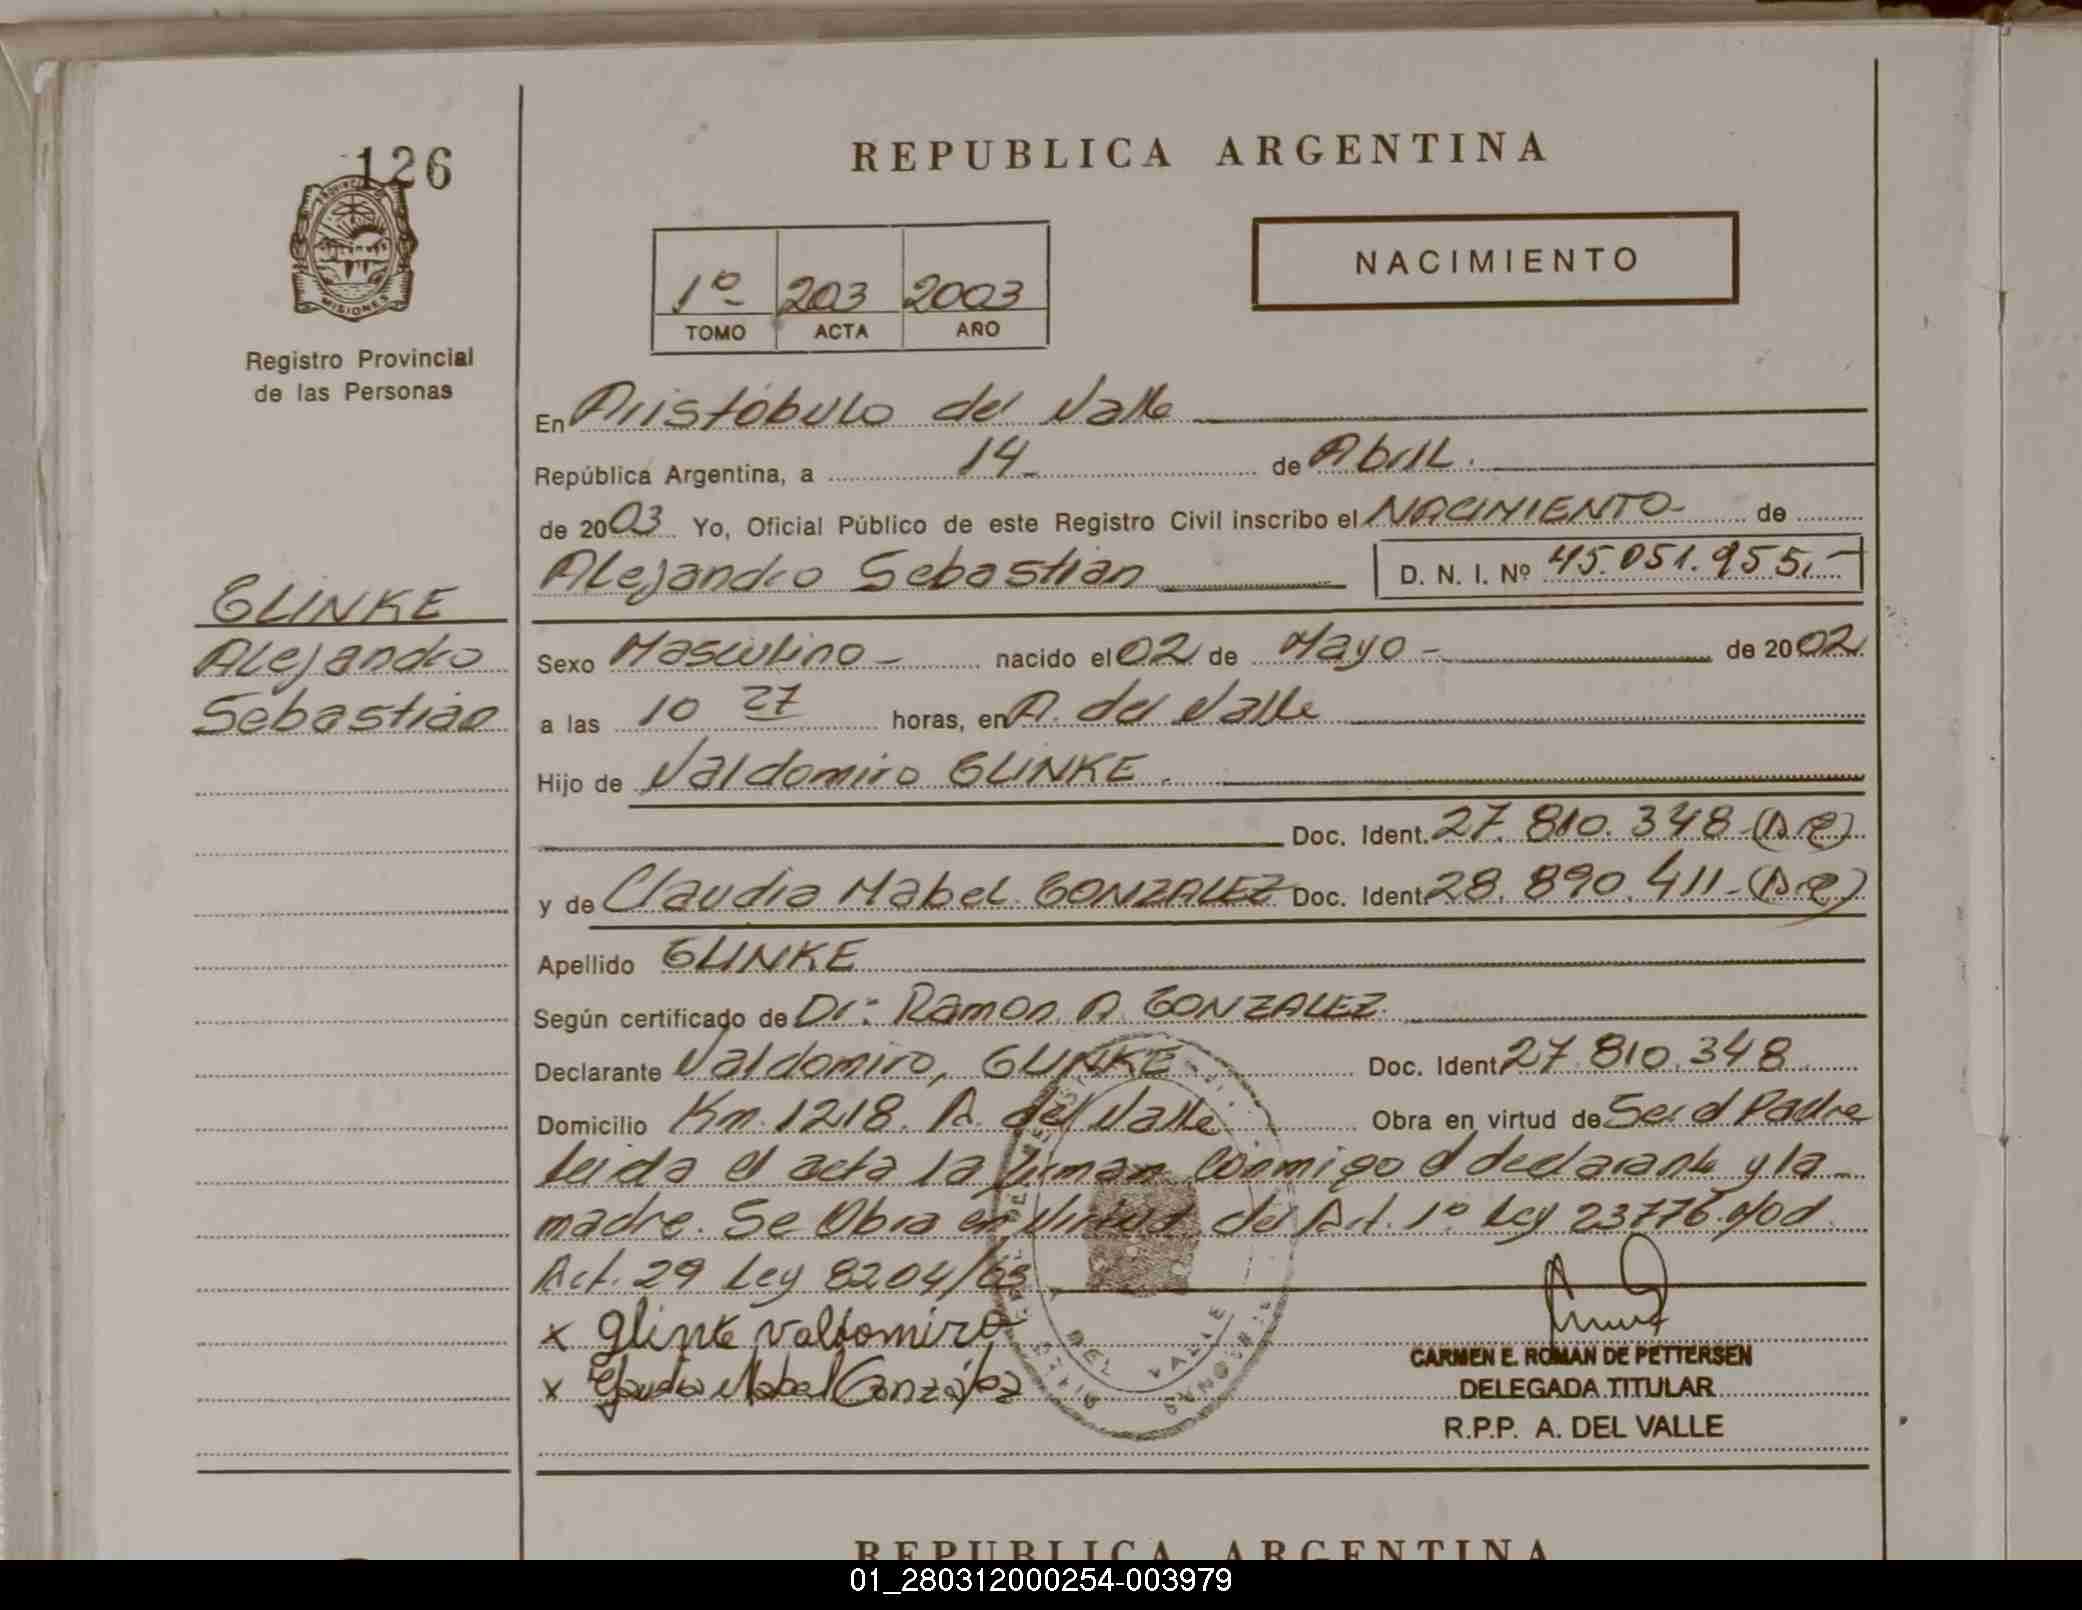 126
PROVINCIA DE
MISIONES
Registro Provincial
de las Personas
REPUBLICA ARGENTINA
1º 203 2003
TOMO ACTA AÑO
NACIMIENTO
En Aristóbulo del Valle
República Argentina, a 14 de Abril.
de 2003 Yo, Oficial Público de este Registro Civil inscribo el NACIMIENTO de
Alejandro Sebastián D. N. I. Nº 45.051.955.-
GLINKE
Alejandro
Sebastián
Sexo Masculino nacido el 02 de Mayo de 2002
a las 10 27 horas, en A. del Valle
Hijo de Valdomiro GLINKE.
Doc. Ident. 27.810.348
y de Claudia Mabel GONZALEZ Doc. Ident. 28.890.411
Apellido GLINKE
Según certificado de Dr: Ramon A. GONZALEZ
Declarante Valdomiro, GLINKE Doc. Ident. 27.810.348
Domicilio Km. 1218. A. del Valle Obra en virtud de Ser el Padre
Leida el acta la firman conmigo el declarante y la
madre. Se Obra en virtud del Art. 1º Ley 23776 Mod
Art. 29 Ley 8204/63
x Glinke valdomiro
x Claudia Mabel González
DEL VALLE
MISIONES
CARMEN E. ROMAN DE PETTERSEN
DELEGADA TITULAR
R.P.P. A. DEL VALLE
REPUBLICA ARGENTINA
01_280312000254-003979